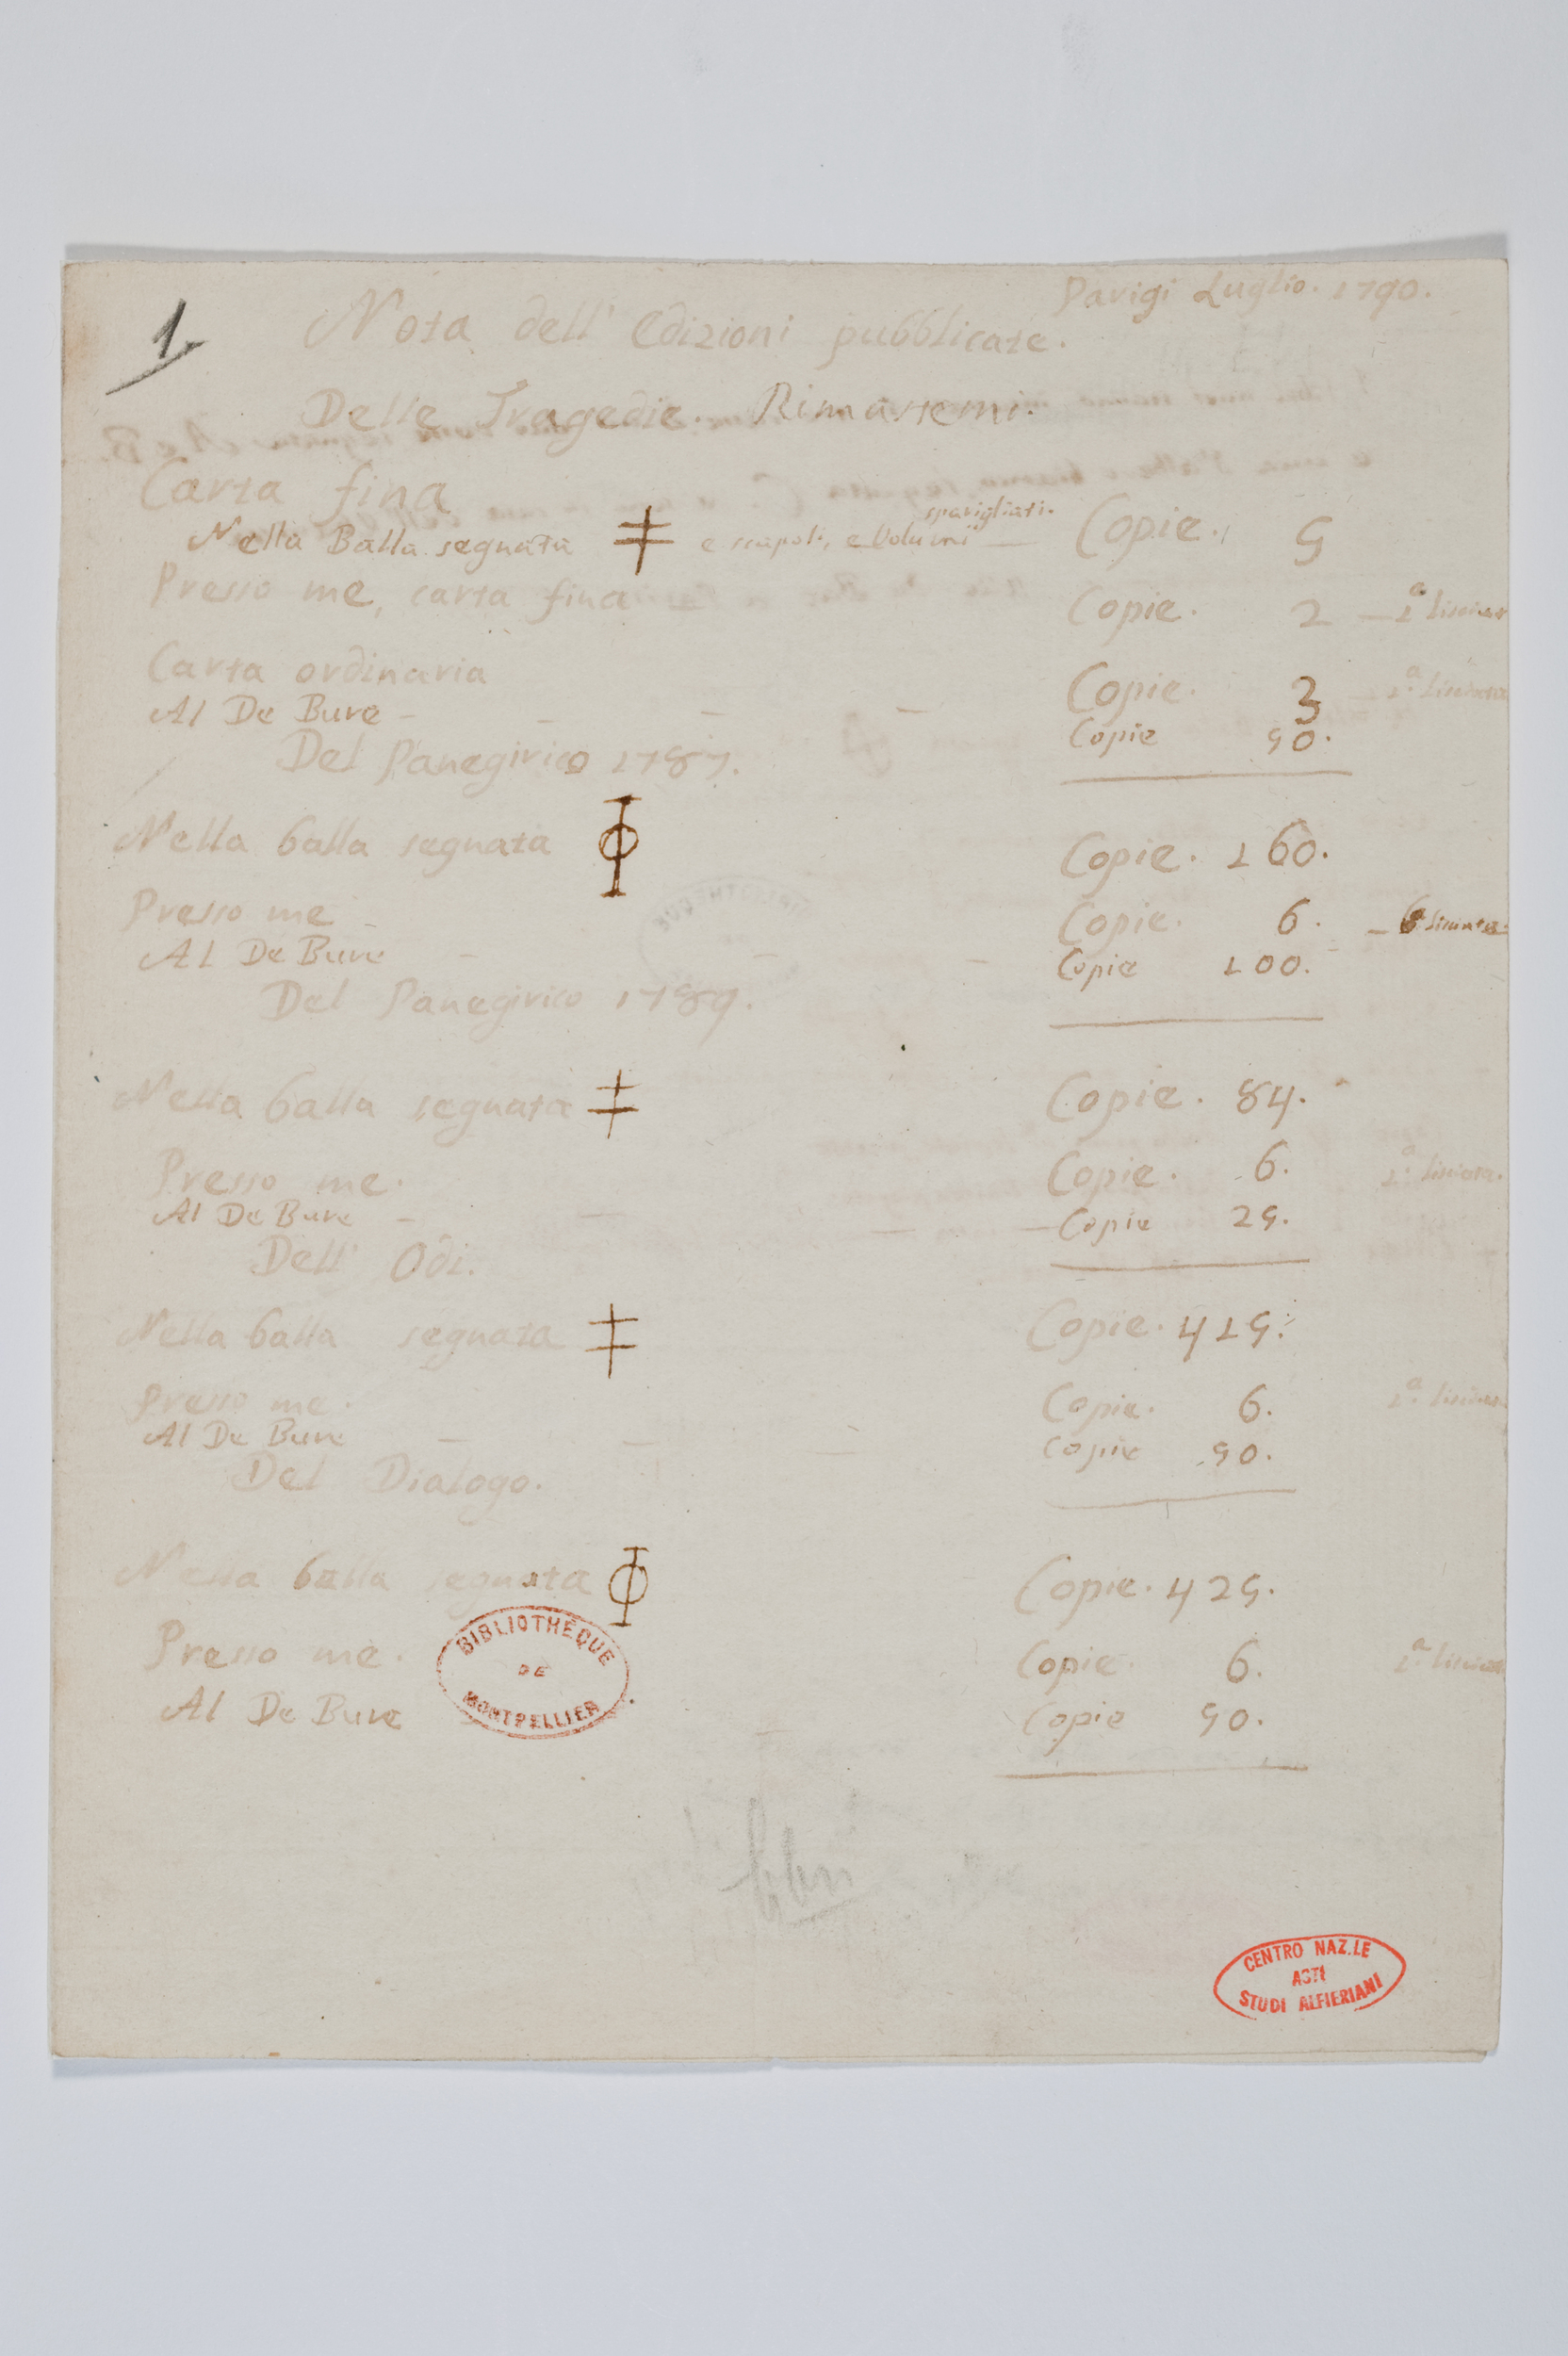 Parigi Luglio. 1790.
1.
Nota dell' Edizioni pubblicate.
Delle Tragedie. Rimastemi.
Carta fina
sparigliati.
Nella Balla segnata ‡ e scapoli, e Volumi — Copie. 5
Presso me, carta fina Copie. 2 — 1.a lisciata
Carta ordinaria Copie. 3 — 1.a lisciata
Al De Bure - - - - Copie 50.
Del Panegirico 1787.
Nella balla segnata Copie. 160.
Presso me - Copie. 6. —
Al De Bure - - - Copie 100.
Del Panegirico 1789.
Nella balla segnata ‡ Copie. 84.
Presso me. Copie. 6. 1.a lisciata.
Al De Bure - - - - Copie 25.
Dell' Odi.
Nella balla segnata ‡ Copie. 415.
Presso me. Copie. 6. 1.a
Al De Bure - - - Copie 50.
Del Dialogo.
Nella balla segnata Copie. 425.
Presso me. Copie. 6. 1.a
Al De Bure - - Copie 50.
BIBLIOTHÈQUE
DE
MONTPELLIER
CENTRO NAZ.LE
ASTI
STUDI ALFIERIANI